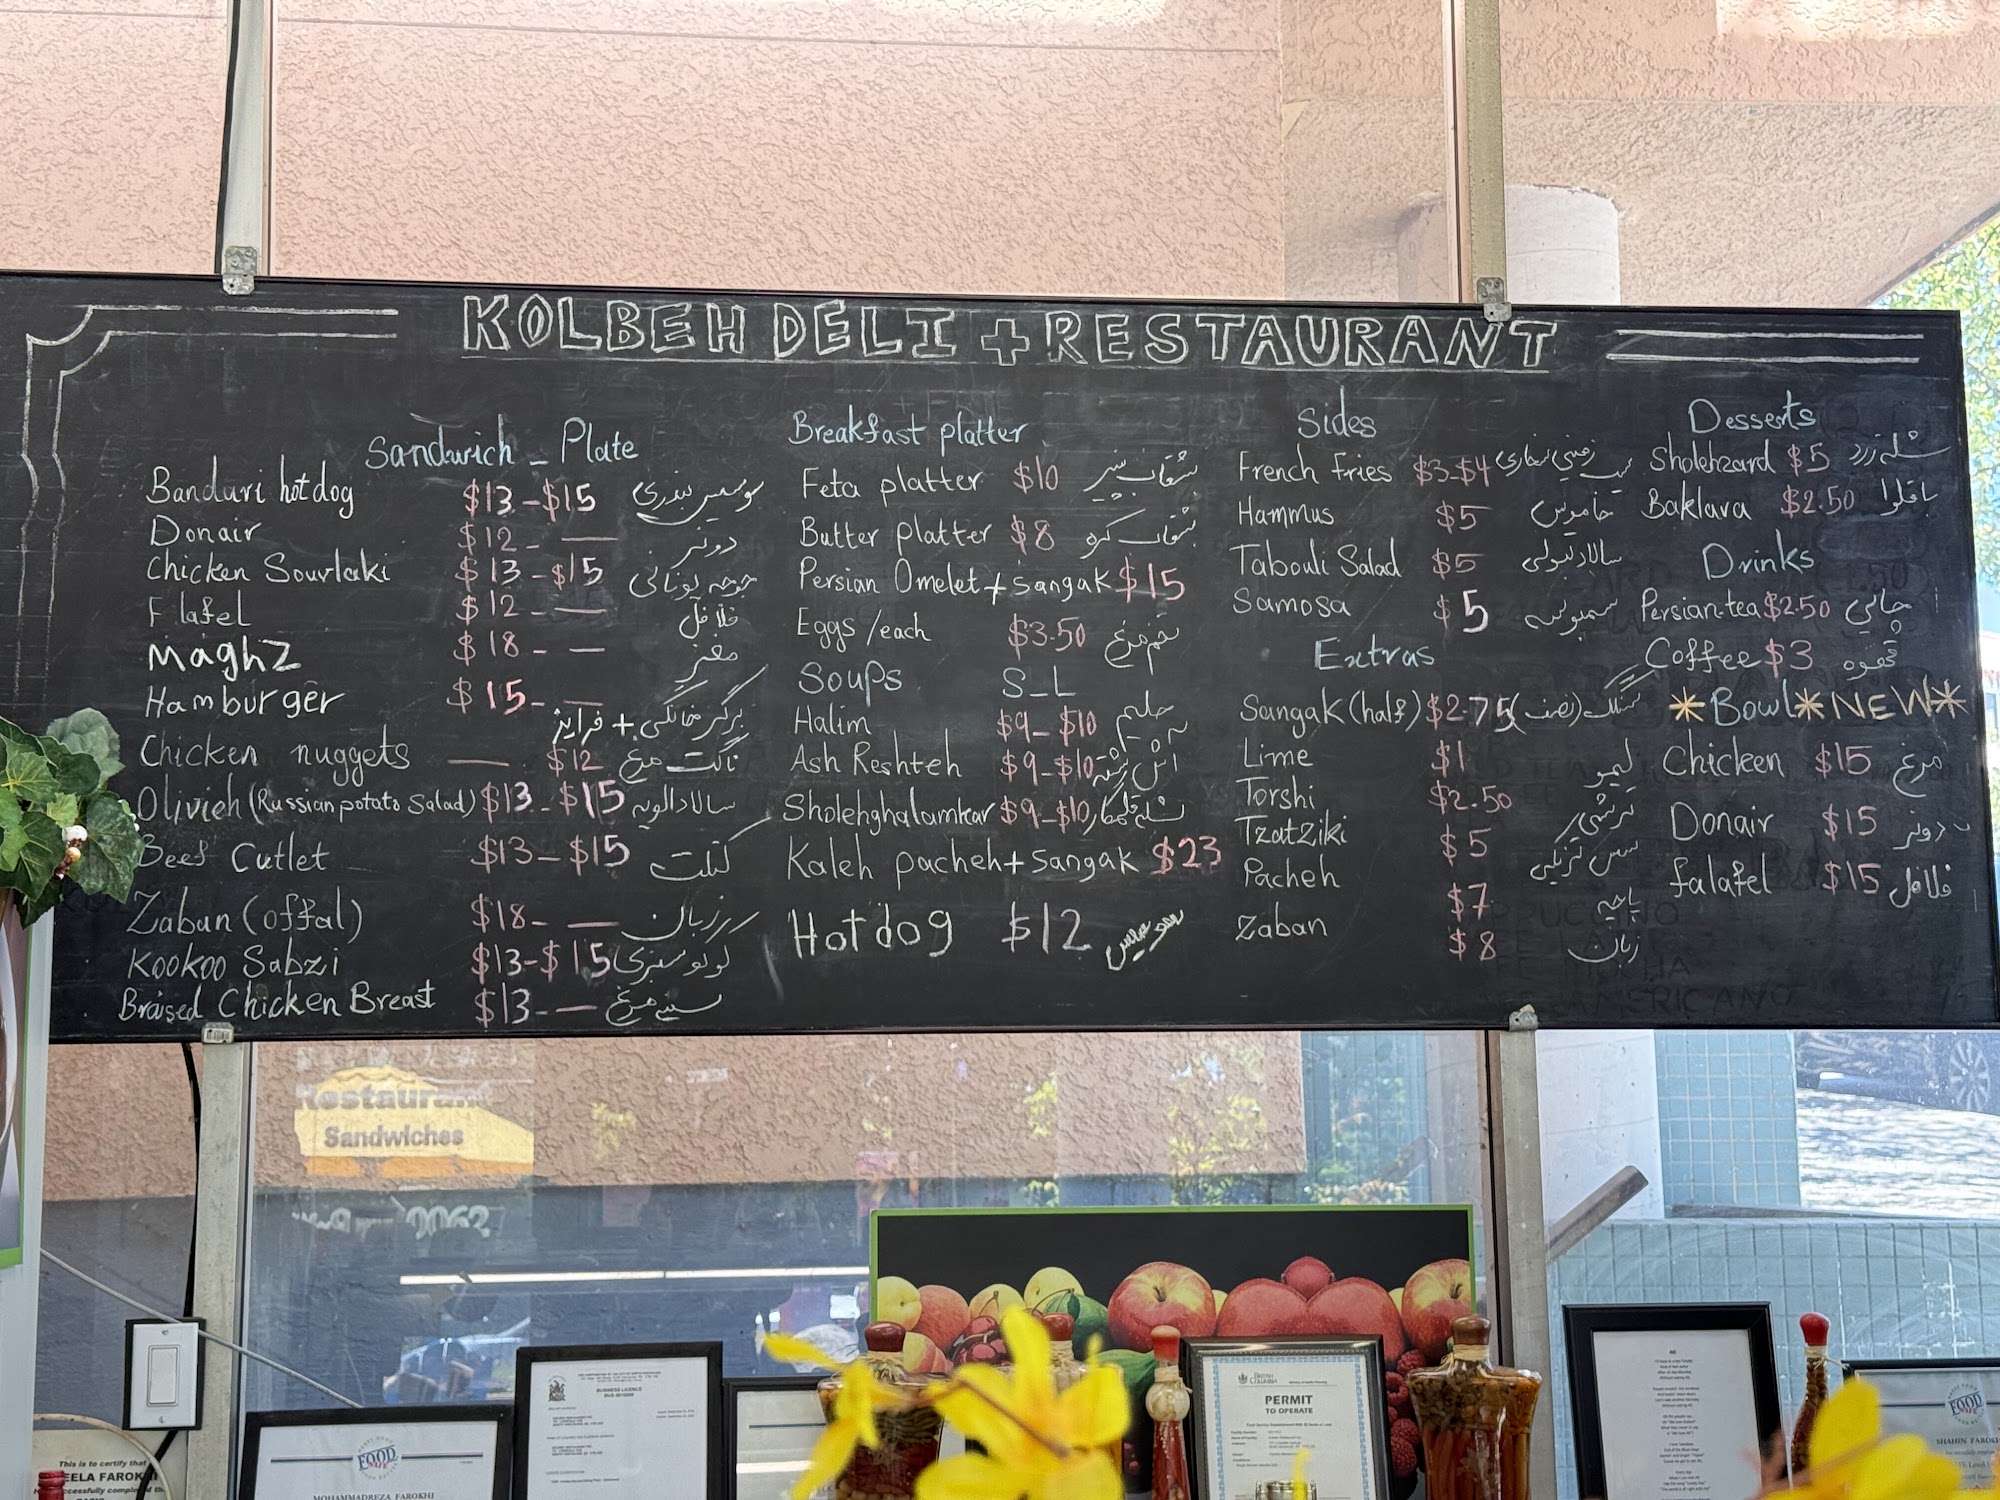 KOLBEH DELI + RESTAURANT
Sandwich - Plate
Banduri hotdog $13-$15 سوسیس بندری
Donair $12- — دونر
Chicken Sourlaki $13-$15 جوجه یونانی
Flafel $12- — فلافل
Maghz $18- — مغز
Hamburger $15- — برگر خانگی + فرایز
Chicken nuggets — $12 ناگت مرغ
Olivieh (Russian potato Salad) $13-$15 سالاد الویه
Beef Cutlet $13-$15 کتلت
Zaban (offal) $18- — زبان
Kookoo Sabzi $13-$15 کوکو سبزی
Braised Chicken Breast $13- — سینه مرغ
Breakfast platter
Feta platter $10 بشقاب پنیر
Butter platter $8 بشقاب کره
Persian Omelet + Sangak $15
Eggs/each $3.50 تخم مرغ
Soups S-L
Halim $9-$10 حلیم
Ash Reshteh $9-$10 آش رشته
Sholehghalamkar $9-$10 شله قلمکار
Kaleh pacheh + Sangak $23
Hotdog $12
Sides
French Fries $3-$4 سیب زمینی
Hammus $5 حاموس
Tabouli Salad $5 سالاد تبولی
Samosa $5 سمبوسه
Extras
Sangak (half) $2.75 سنگک (نصف)
Lime $1 لیمو
Torshi $2.50 ترشی
Tzatziki $5 سس تزیکی
Pacheh $7 پاچه
Zaban $8 زبان
Desserts
Sholehzard $5 شله زرد
Baklava $2.50 باقلوا
Drinks
Persian-tea $2.50 چایی
Coffee $3 قهوه
*Bowl*NEW*
Chicken $15 مرغ
Donair $15 دونر
falafel $15 فلافل
Restaurant
Sandwiches
This is to certify that
EELA FAROKHI
FOOD SAFE
MOHAMMADREZA FAROKHI
BUSINESS LICENCE
BRITISH COLUMBIA
PERMIT
TO OPERATE
FOOD SAFE
SHAHIN FAROKHI